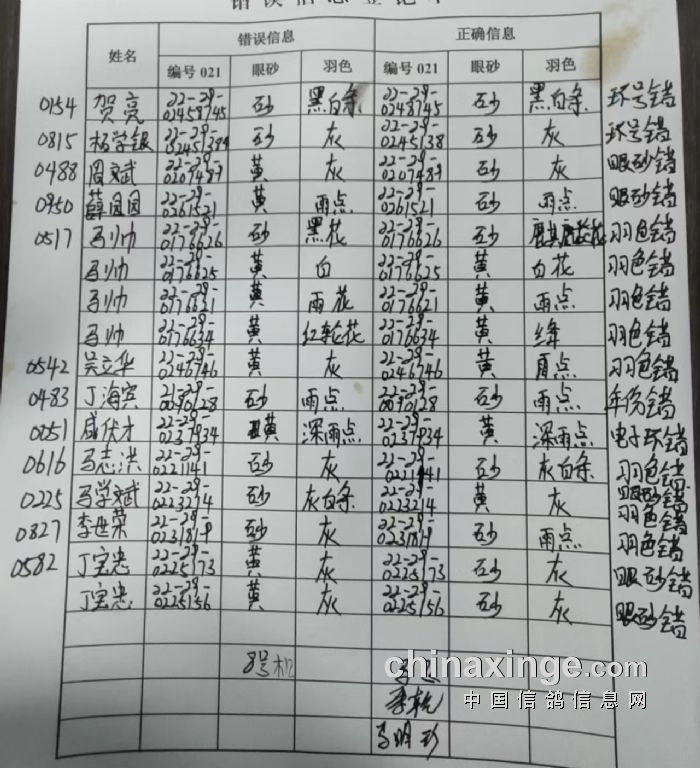 错误信息登记
姓名 错误信息 正确信息
编号 021 眼砂 羽色 编号 021 眼砂 羽色
0154 贺亮 22-29-02458745 砂 黑白条 22-29-0248745 砂 黑白条 环号错
0815 杨学银 22-29- 砂 灰 22-29-0245138 砂 灰 环号错
0488 周斌 22-29-0207487 黄 灰 22-29-0207487 砂 灰 眼砂错
0950 薛园园 22-29-0261521 黄 雨点 22-29-0261521 砂 雨点 眼砂错
0517 马帅 22-29-0176626 砂 黑花 22-29-0176626 砂 羽色错
马帅 22-29-0176625 黄 白 22-29-0176625 黄 白花 羽色错
马帅 22-29-0176631 黄 雨花 22-29-0176621 黄 雨点 羽色错
马帅 22-29-0176634 黄 红轮花 22-29-0176634 黄 绛 羽色错
0542 吴立华 22-29-0246746 黄 灰 22-29-0246746 黄 雨点 羽色错
0483 丁海宾 21-29-0090128 砂 雨点 22-29-0090128 砂 雨点 年份错
0251 咸伏才 22-29-0237934 黄 深雨点 22-29-0237934 黄 深雨点 电子环错
0616 马志洪 22-29-0221141 砂 灰 22-29-0221141 砂 灰白条 羽色错
0225 马学斌 22-29-0223214 砂 灰白条 22-29-0223214 黄 灰 眼砂错 羽色错
0827 李进荣 22-29-0231819 砂 灰 22-29-0231819 砂 雨点 羽色错
0582 丁宝忠 22-29-0225173 黄 灰 22-29-0225173 砂 灰 眼砂错
丁宝忠 22-29-0225156 黄 灰 22-29-0225156 砂 灰 眼砂错
8号机
chinaxinge.com
中国信鸽信息网
马明珍